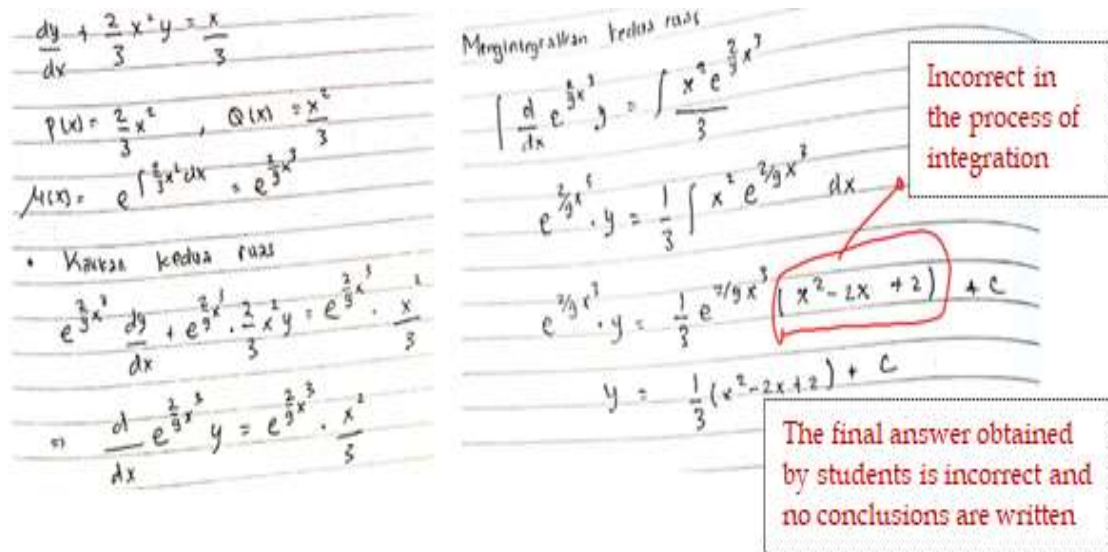 dy/dx + 2/3 x² y = x/3
P(x) = 2/3 x² , Q(x) = x²/3
μ(x) = e^∫ 2/3 x² dx = e^2/9 x³
• Kalikan kedua ruas
e^2/9 x³ dy/dx + e^2/9 x³ · 2/3 x² y = e^2/9 x³ · x²/3
=> d/dx e^2/9 x³ y = e^2/9 x³ · x²/3
Mengintegralkan kedua ruas
∫ d/dx e^2/9 x³ · y = ∫ x² e^2/9 x³ / 3
e^2/9 x³ · y = 1/3 ∫ x² e^2/9 x³ dx
e^2/9 x³ · y = 1/3 e^2/9 x³ (x² - 2x + 2) + C
y = 1/3 (x² - 2x + 2) + C
Incorrect in
the process of
integration
The final answer obtained
by students is incorrect and
no conclusions are written